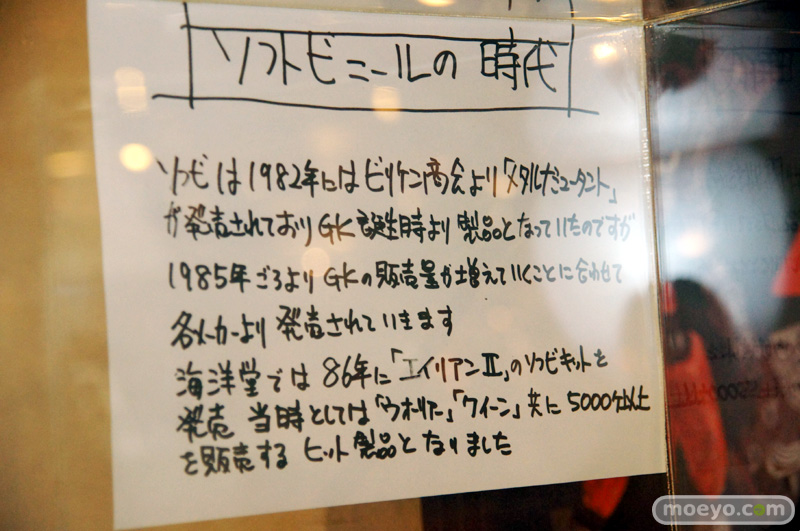 ソフトビニールの時代
ソフビは1982年にはビリケン商会より「メタルナミュータント」
が発売されておりGK誕生時より製品となっていたのですが
1985年ごろよりGKの販売量が増えていくことに合わせて
各メーカーより発売されていきます
海洋堂では86年に「エイリアンⅡ」のソフビキットを
発売 当時としては「ウオーリアー」「クイーン」共に5000ケ以上
を販売するヒット製品となりました
moeyo.com